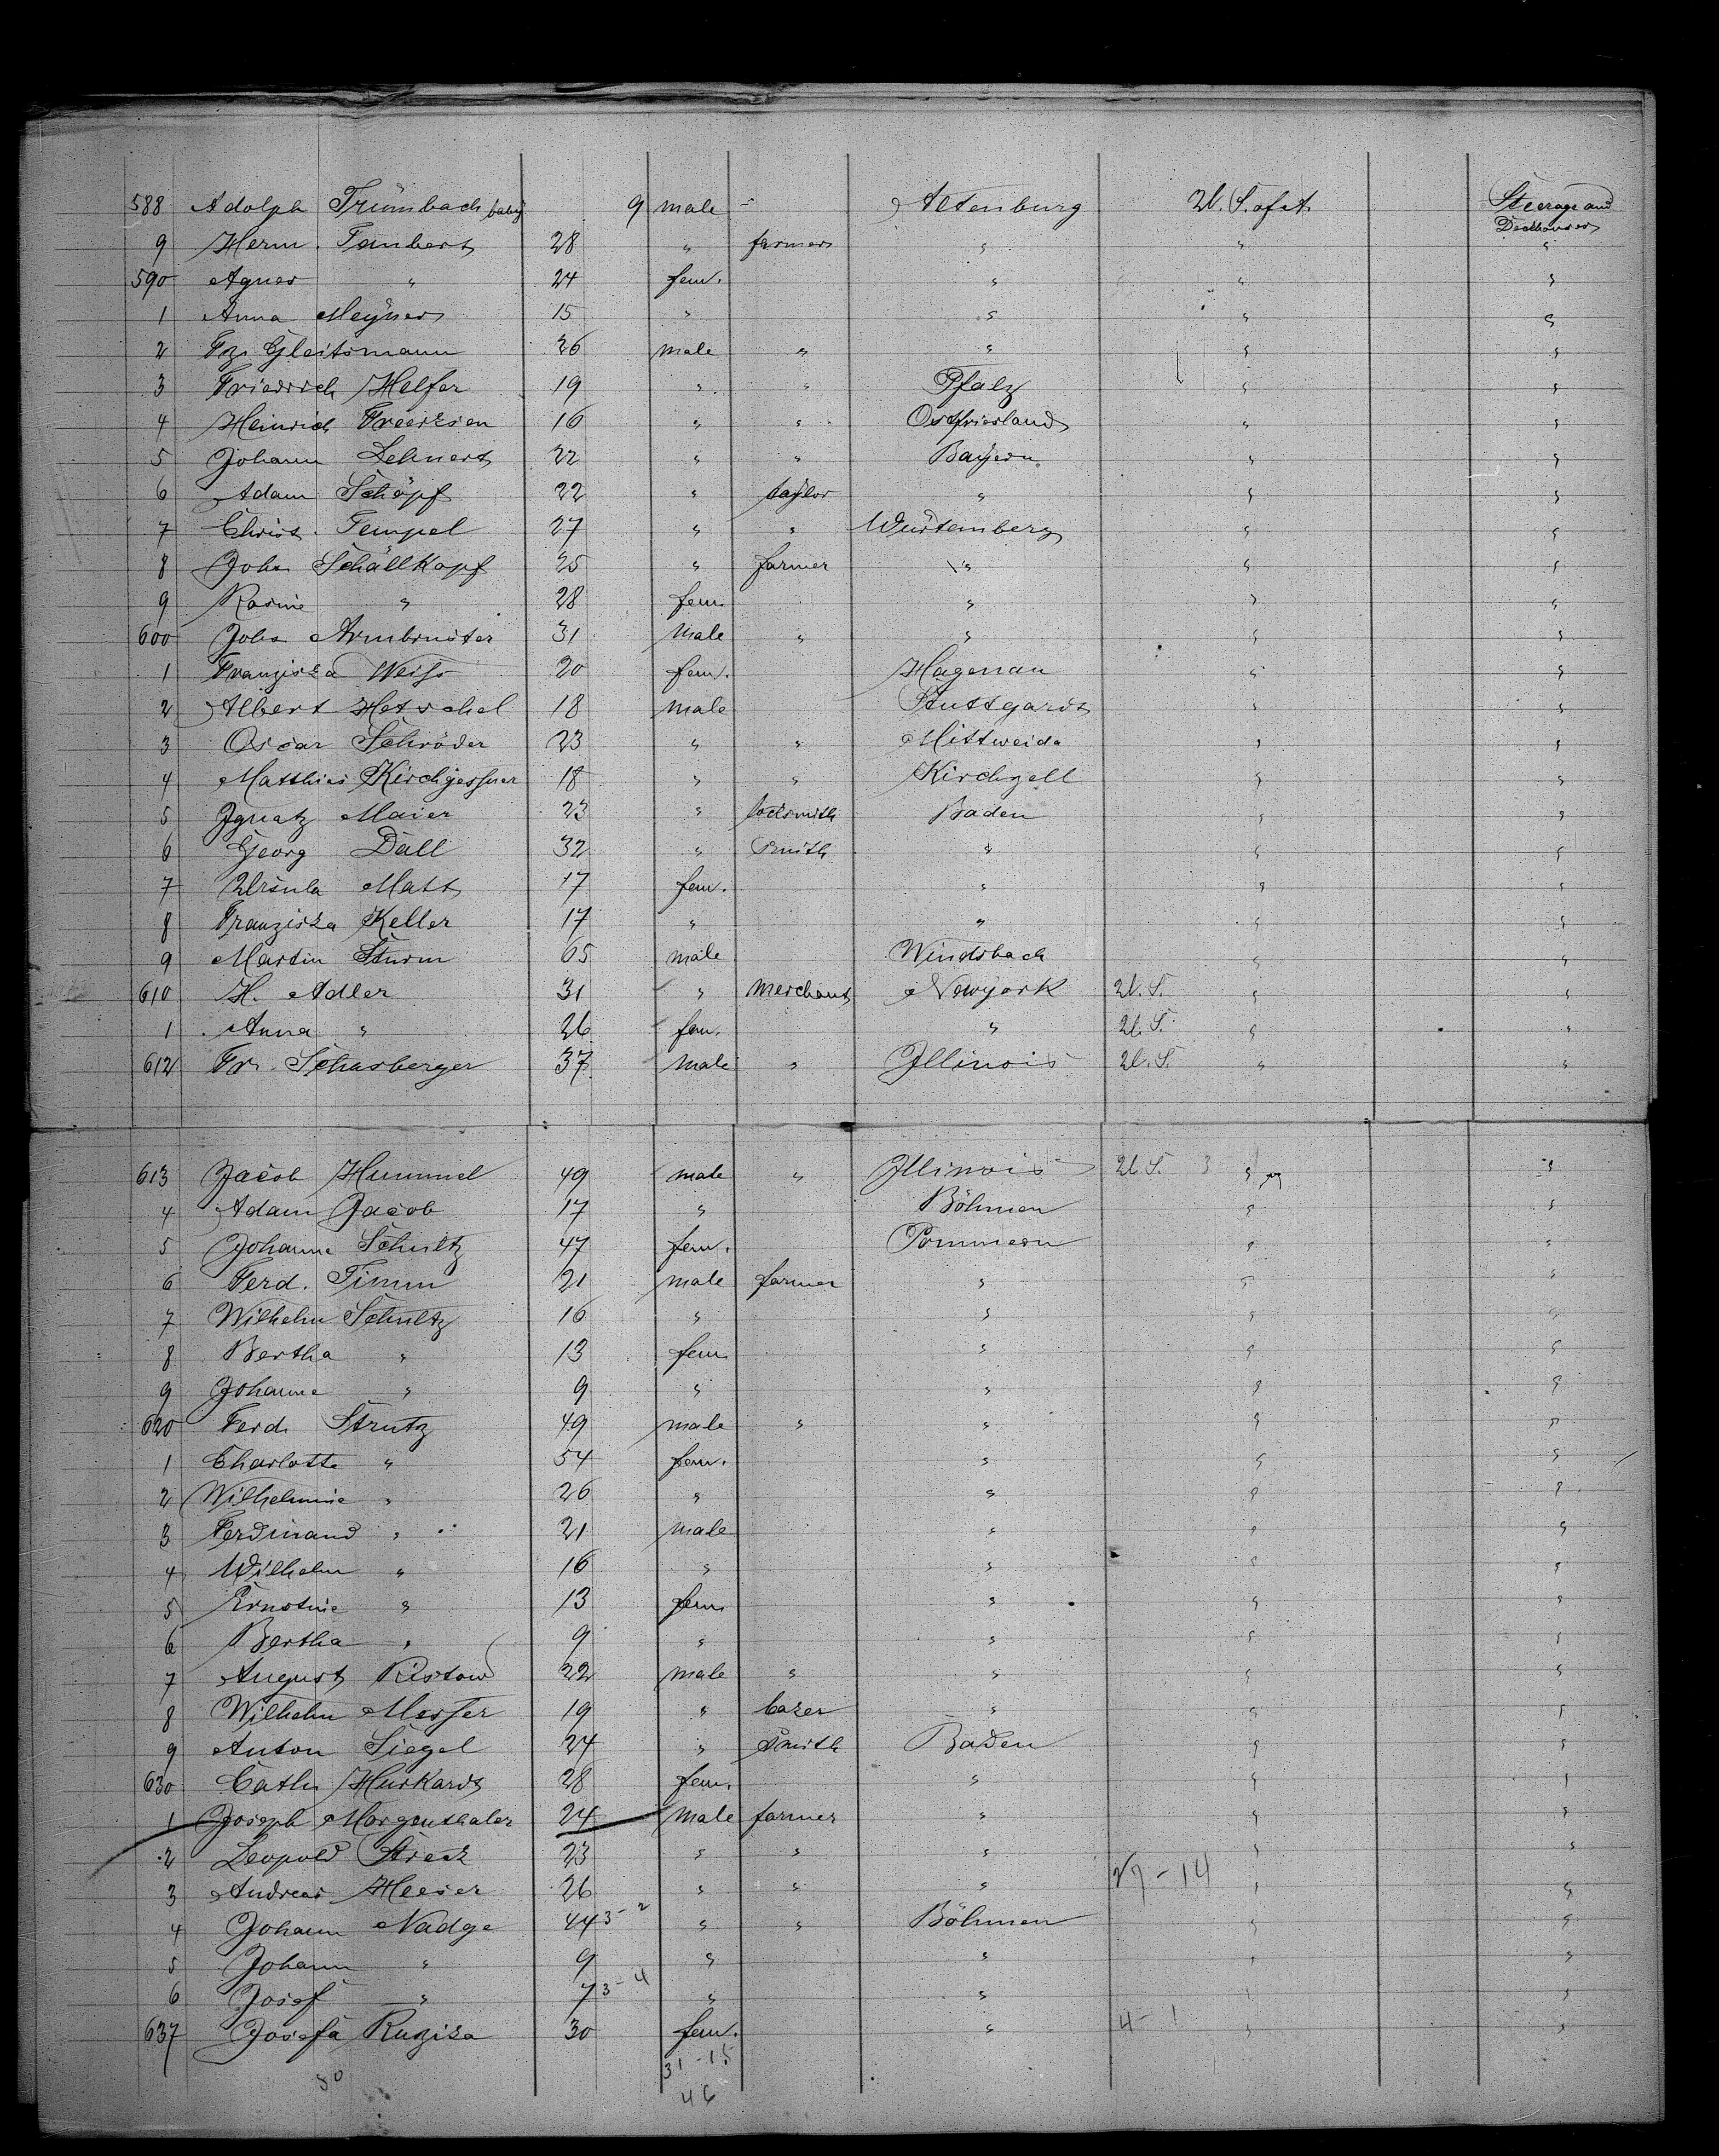 588 Adolph Trümbach baby 9 male " Altenburg U. S. of A. Steerage and Deckhouses
9 Herm. Tambert 28 " farmer " " "
590 Agnes " 24 fem. " " "
1 Anna Meyner 15 " " " "
2 Frz. Gleitsmann 26 male " " " "
3 Friedrich Helfer 19 " " Pfalz " "
4 Heinrich Freerksen 16 " " Ostfriesland " "
5 Johann Lehnert 22 " " Bayern " "
6 Adam Schöpf 22 " taylor " " "
7 Christ. Tempel 27 " " Würtemberg " "
8 Johs Schällkopf 25 " farmer " " "
9 Rosine " 28 fem. " " "
600 Johs Armbruster 31 male " " " "
1 Franziska Weiss 20 fem. Hagenau " "
2 Albert Hetschel 18 male Stuttgart " "
3 Oscar Schröder 23 " " Mittweida " "
4 Matthias Kirchgessner 18 " " Kirchzell " "
5 Ignatz Maier 23 " locksmith Baden " "
6 Georg Däll 32 " Smith " " "
7 Ursula Matt 17 fem. " " "
8 Franziska Keller 17 " " " "
9 Martin Sturm 65 male Windsbach " "
610 H. Adler 31 " Merchant Newyork U. S. " "
1 Anna " 26 fem. " U. S. " "
612 Fr. Schasberger 37 male " Illinois U. S. " "
613 Jacob Hummel 49 male " Illinois U. S. 3 " "
4 Adam Jacob 17 " Böhmen " "
5 Johanne Schultz 47 fem. Pommern " "
6 Ferd. Timm 21 male farmer " " "
7 Wilhelm Schultz 16 " " " "
8 Bertha " 13 fem. " " "
9 Johanne " 9 " " " "
620 Ferd. Strutz 49 male " " " "
1 Charlotte " 54 fem. " " "
2 Wilhelmine " 26 " " " "
3 Ferdinand " 21 male " " "
4 Wilhelm " 16 " " " "
5 Ernstine " 13 fem. " " "
6 Bertha " 9 " " " "
7 August Ristow 22 male " " " "
8 Wilhelm Messer 19 " baker " " "
9 Anton Siegel 24 " Smith Baden " "
630 Cath. Hurkard 28 fem. " " "
1 Joseph Morgenthaler 24 male farmer " " "
2 Leopold Streck 23 " " " " "
3 Andreas Heeser 26 " " " 27-14 " "
4 Johann Nadge 44 3-2 " " Böhmen " "
5 Johann " 9 " " " "
6 Josef " 7 3-4 " " " "
637 Josefa Ruziza 30 fem. " 4-1 " "
50 31-15
46